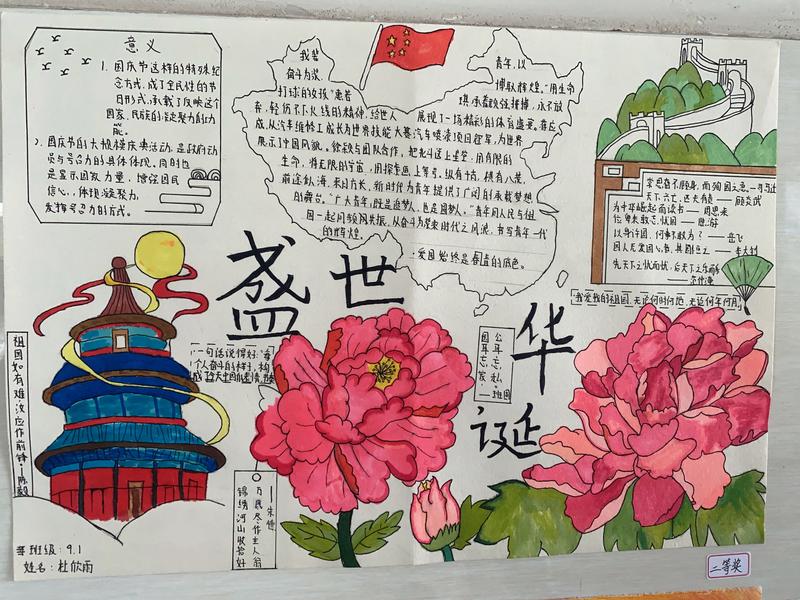 意义
1. 国庆节这样的特殊纪
念方式,成了全民性的节
日形式,承载了反映这个
国家,民族的凝聚力的功
能。
2. 国庆节的大规模庆典活动,是政府动
员与号召力的具体体现。同时也
是显示国家力量,增强国民
信心,体现凝聚力,
发挥号召力的方式。
我辈
奋斗为桨
打球的女孩"惠若
青年,以
搏耿辉煌。"用生命
展现了一场精彩的体育盛宴。蒋应
成,从汽车维修工成长为世界技能大赛汽车喷漆项目冠军,为世界
展示了中国风。徐颖与团队合作,把北斗送上星空,用有限的
生命,将无限的宇宙,
前途似海,来日方长,新时代为青年提供了广阔的承载梦想
的舞台。"广大青年,既是追梦人,也是圆梦人。"青年同人民与祖
国一起同频同共振,从奋斗为桨来时代之风流,书写青年一代
的辉煌。
·爱国始终是奋进的底色。
常思奋不顾身,而殉国家之急。--司马迁
天下兴亡,匹夫有责 -- 顾炎武
为中华崛起而读书 -- 周恩来
位卑未敢忘忧国 -- 陆游
以身许国,何事不敢为? -- 岳飞
国人无爱国心者,其国恒亡 -- 李大钊
先天下之忧而忧,后天下之乐而乐
-- 范仲淹
我爱我的祖国,无论何时何地,无论何年何月。
盛世
华
诞
祖国如有难汝应作前锋--陈毅
一句话说得好:"每
个人奋斗的样子,构
公耳忘私,
国耳忘家。
--班固
--朱德
万民尽作主人翁
锦绣河山收拾好
班级:9.1
姓名:杜欣雨
二等奖